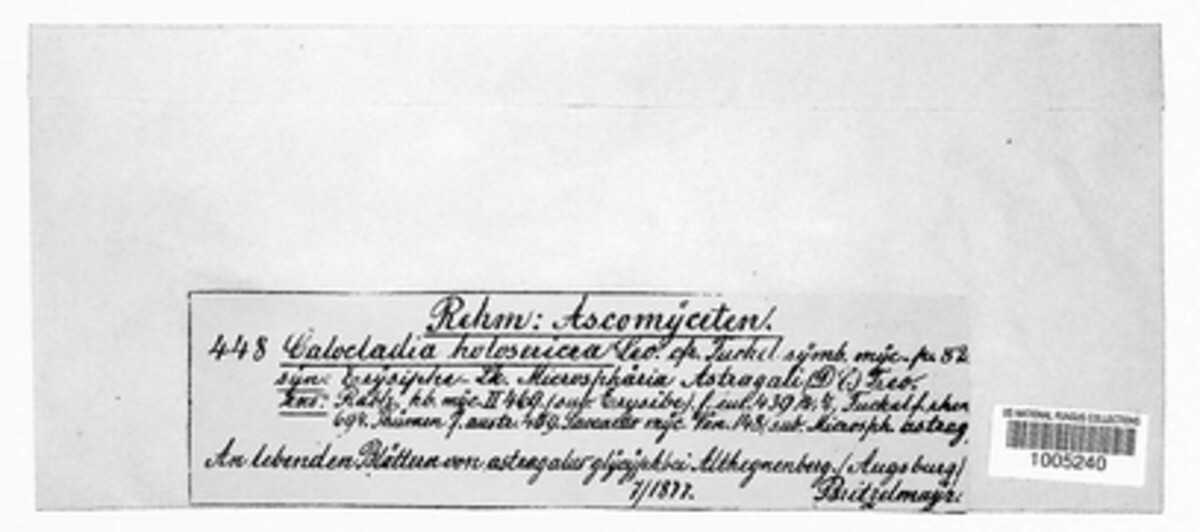 Rehm: Ascomyceten.
448 Calocladia holosericea Lev. cfr. Fuckel symb. myc. p. 82
syn: Erysiphe - Lk. Microsphäria Astragali (DC) Trev.
exs: Rabh. hb. myc. II 469. (sub Erysibe) f. eur. 439 Fuckel f. rhen
694. Thümen f. austr. 459. Saccardo myc. Ven. 148 (sub. Microsph. astrag.
An lebenden Blättern von astragalus glycyph bei Althegnenberg. (Augsburg)
7/1877. Britzelmayr.
US NATIONAL FUNGUS COLLECTIONS
1005240